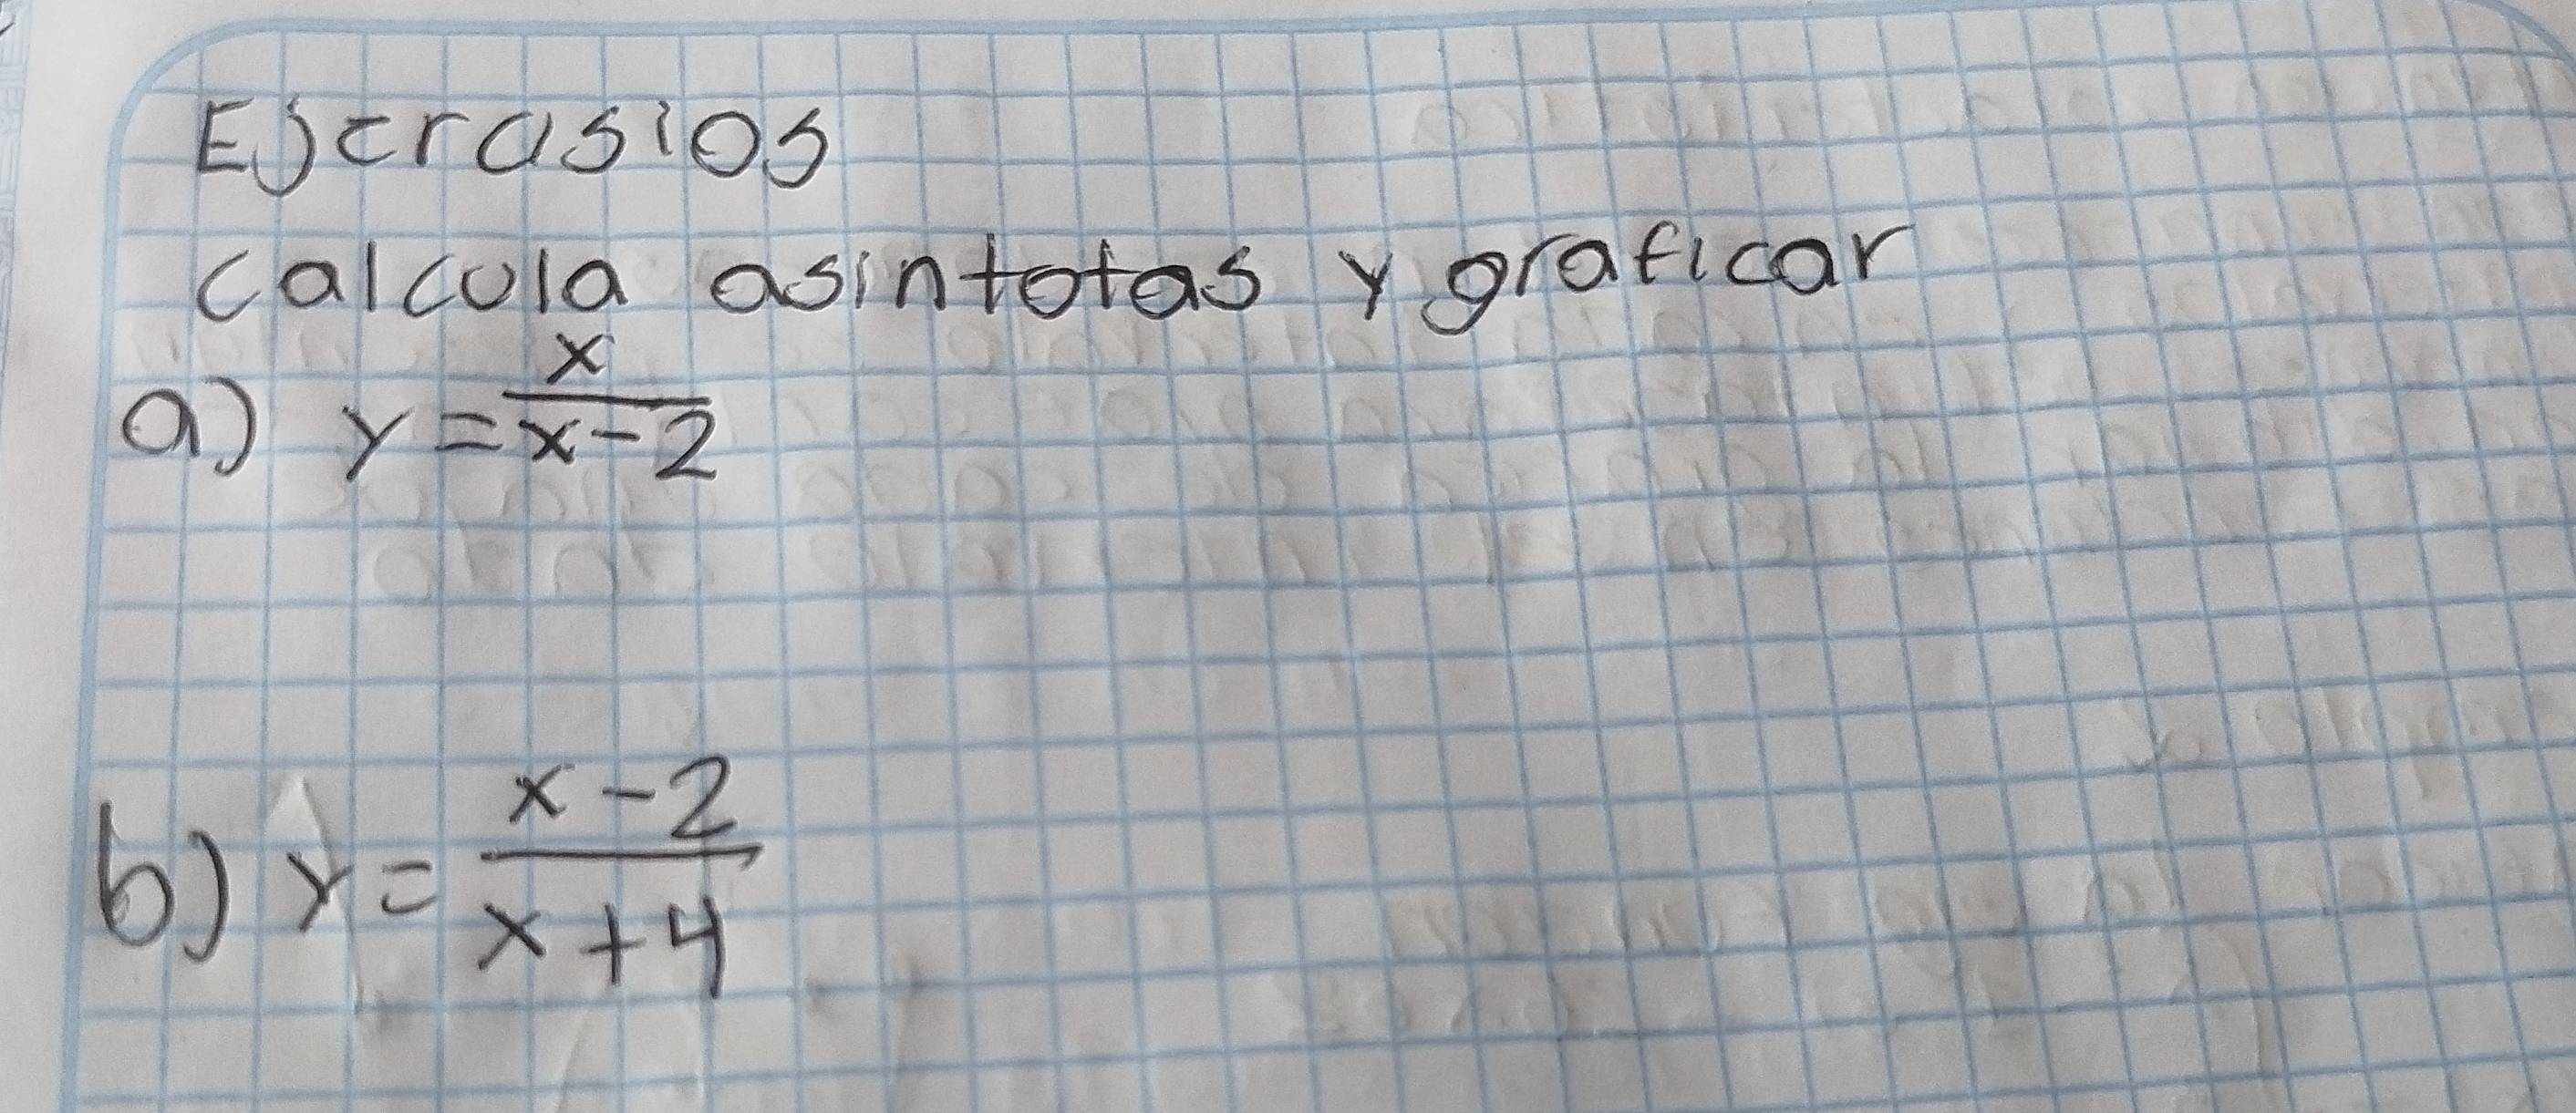 Ejercisios
calcula asintotas y graficar
a) y = x/(x-2)
b) y = (x-2)/(x+4)